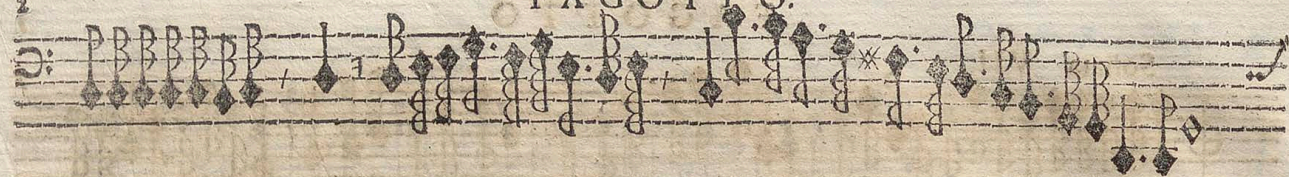 2
FAGOTTO.